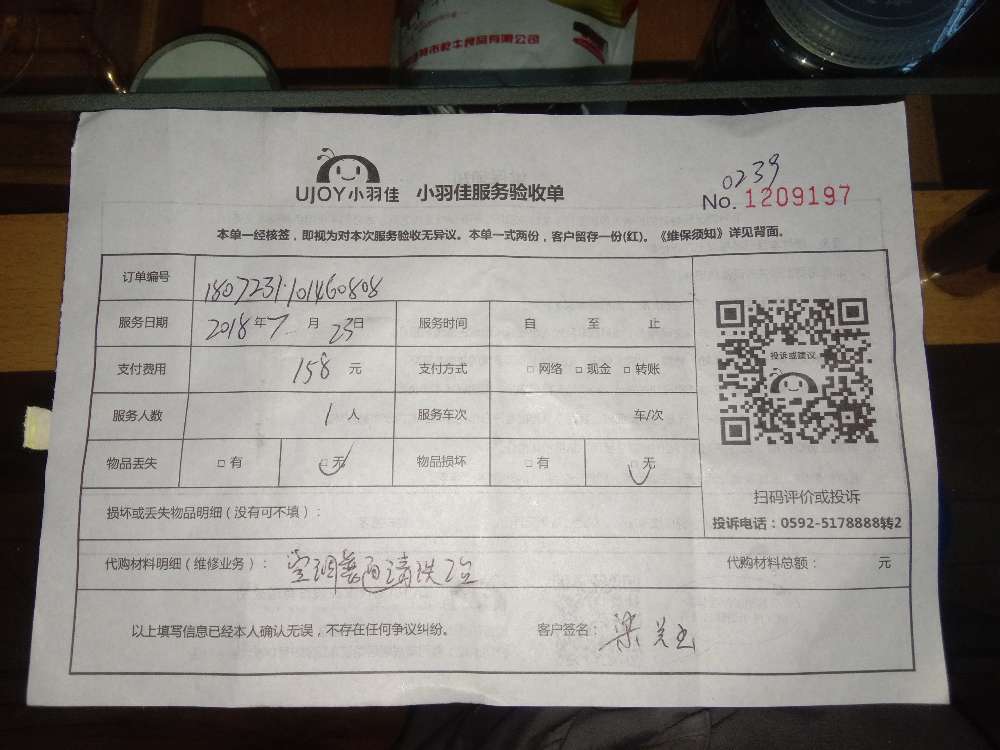 市乾生食品有限公司
UJOY小羽佳 小羽佳服务验收单
0239
No. 1209197
本单一经核签，即视为对本次服务验收无异议。本单一式两份，客户留存一份(红)。《维保须知》详见背面。
订单编号 1807231101460808
服务日期 2018年7月23日 服务时间 自 至 止
支付费用 158元 支付方式 □网络 □现金 □转账
服务人数 1人 服务车次 车/次
物品丢失 □有 □无 物品损坏 □有 □无
投诉或建议
扫码评价或投诉
投诉电话：0592-5178888转2
损坏或丢失物品明细（没有可不填）：
代购材料明细（维修业务）： 空调 清洗2台 代购材料总额： 元
以上填写信息已经本人确认无误，不存在任何争议纠纷。 客户签名： 梁